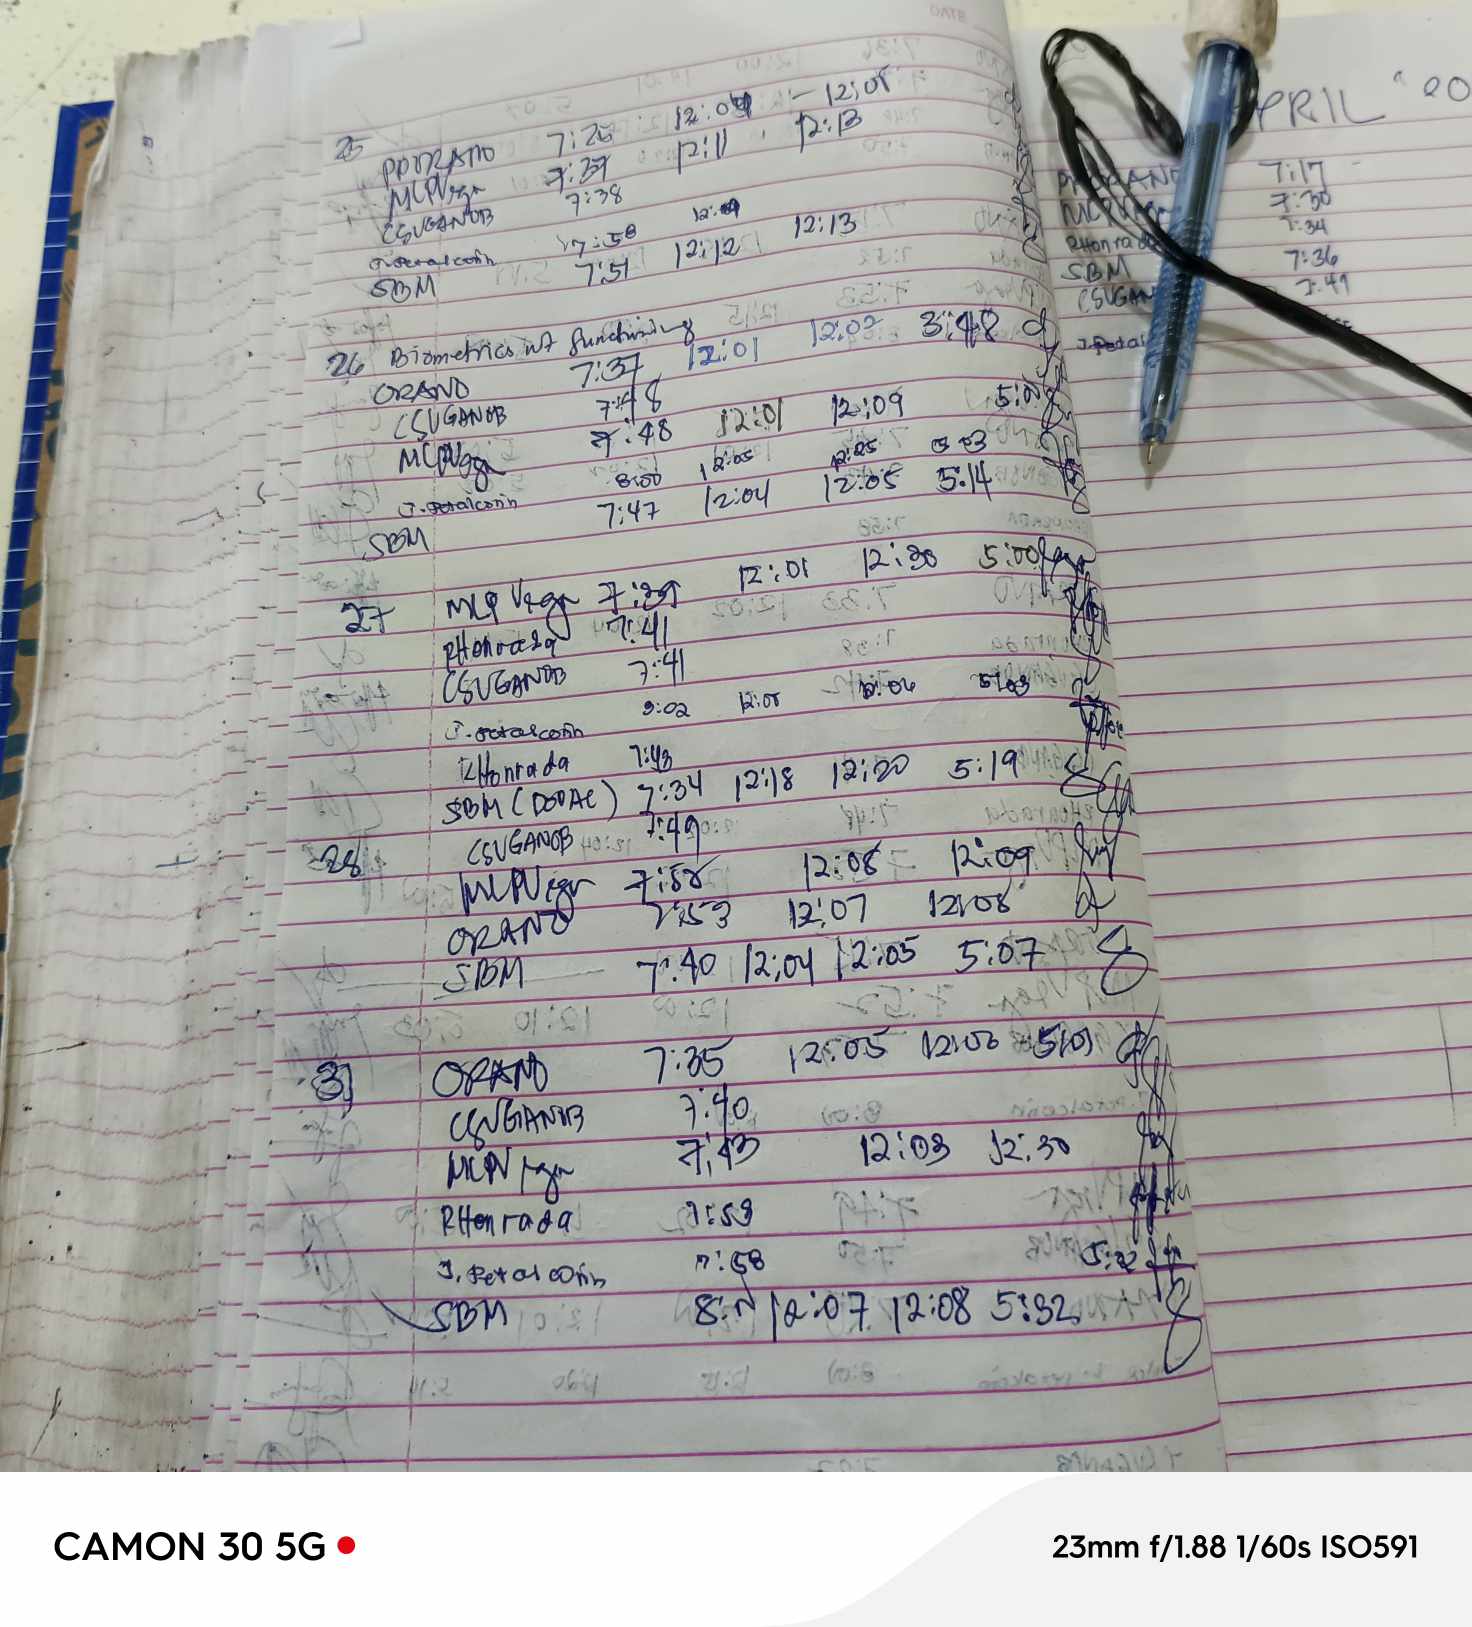 25 PPORANO 7:25 12:04 - 12:05
MCPVega 7:37 12:11 12:13
CSUGANOB 7:38
J. Petalcorin 7:58 12:09
SBM 7:51 12:12 12:13
26 Biometrics not functioning
ORANO 7:37 12:01 12:02 3:48
CSUGANOB 7:48
MCPVega 7:48 12:01 12:09 5:08
J. Petalcorin 8:00 12:05 12:25 5:03
SBM 7:47 12:04 12:05 5:14
27 MCPVega 7:39 12:01 12:30 5:00
RHonrada 7:41
CSUGANOB 7:41
J. Petalcorin 8:02 12:05 12:06 5:03
RHonrada 7:43
SBM 7:34 12:18 12:20 5:19
28 CSUGANOB 7:49
MCPVega 7:58 12:08 12:09
ORANO 7:53 12:07 12:08
SBM 7:40 12:04 12:05 5:07
31 ORANO 7:35 12:05 12:06 5:01
CSUGANOB 7:40
MCPVega 7:43 12:03 12:30
RHonrada 7:53
J. Petalcorin 7:58
SBM 12:07 12:08 5:32
APRIL "20
7:17
MCPVega 7:30
RHonrada 7:34
SBM 7:36
CSUGAN 7:49
J. Petal
CAMON 30 5G
23mm f/1.88 1/60s ISO591